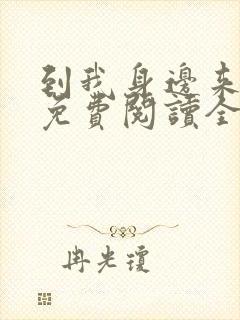 到我身邊來
免費閱讀全
冉光瓊